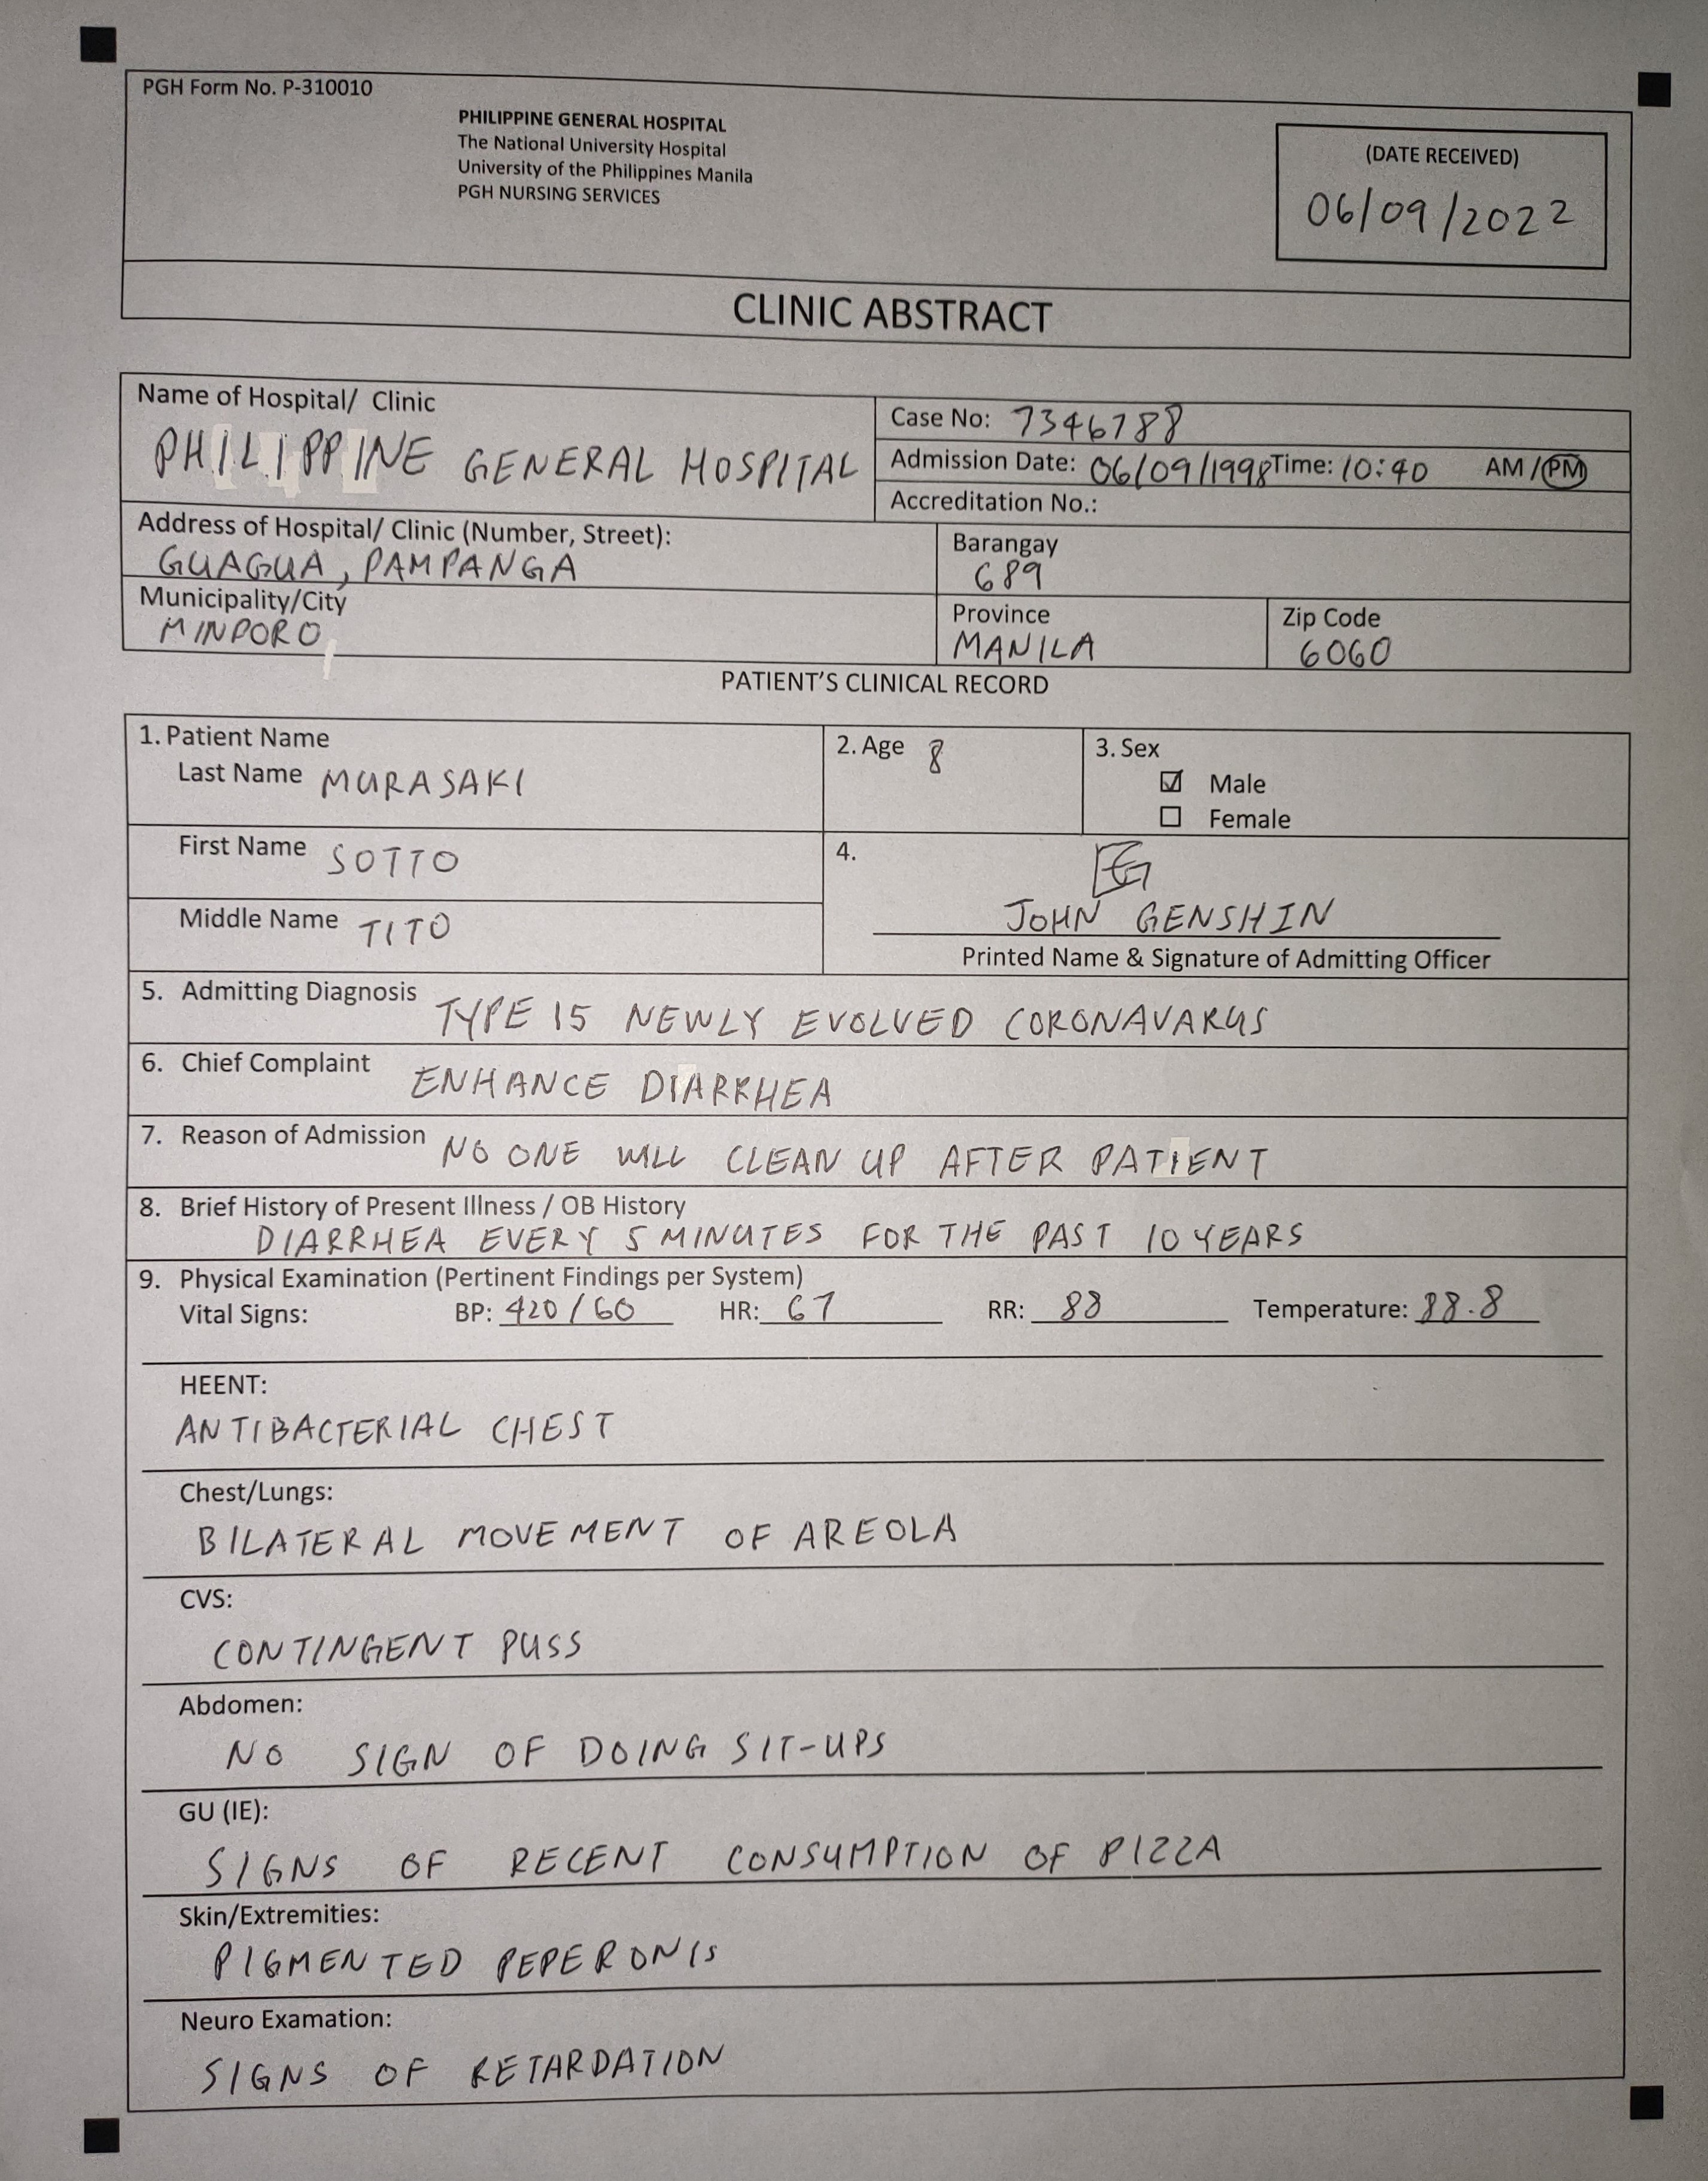 PGH Form No. P-310010
PHILIPPINE GENERAL HOSPITAL
The National University Hospital
University of the Philippines Manila
PGH NURSING SERVICES
(DATE RECEIVED)
06/09/2022
CLINIC ABSTRACT
Name of Hospital/ Clinic
PHILIPPINE GENERAL HOSPITAL
Case No: 7346788
Admission Date: 06/09/1998 Time: 10:40 AM / PM
Accreditation No.:
Address of Hospital/ Clinic (Number, Street):
GUAGUA, PAMPANGA
Barangay
689
Municipality/City
MINDORO
Province
MANILA
Zip Code
6060
PATIENT'S CLINICAL RECORD
1. Patient Name
Last Name MURASAKI
2. Age 8
3. Sex
Male
Female
First Name SOTTO
Middle Name TITO
4.
JOHN GENSHIN
Printed Name & Signature of Admitting Officer
5. Admitting Diagnosis TYPE 15 NEWLY EVOLVED CORONAVARUS
6. Chief Complaint ENHANCE DIARRHEA
7. Reason of Admission NO ONE WILL CLEAN UP AFTER PATIENT
8. Brief History of Present Illness / OB History
DIARRHEA EVERY 5 MINUTES FOR THE PAST 10 YEARS
9. Physical Examination (Pertinent Findings per System)
Vital Signs: BP: 420/60 HR: 67 RR: 88 Temperature: 88.8
HEENT:
ANTIBACTERIAL CHEST
Chest/Lungs:
BILATERAL MOVEMENT OF AREOLA
CVS:
CONTINGENT PUSS
Abdomen:
NO SIGN OF DOING SIT-UPS
GU (IE):
SIGNS OF RECENT CONSUMPTION OF PIZZA
Skin/Extremities:
PIGMENTED PEPERONIS
Neuro Examation:
SIGNS OF RETARDATION